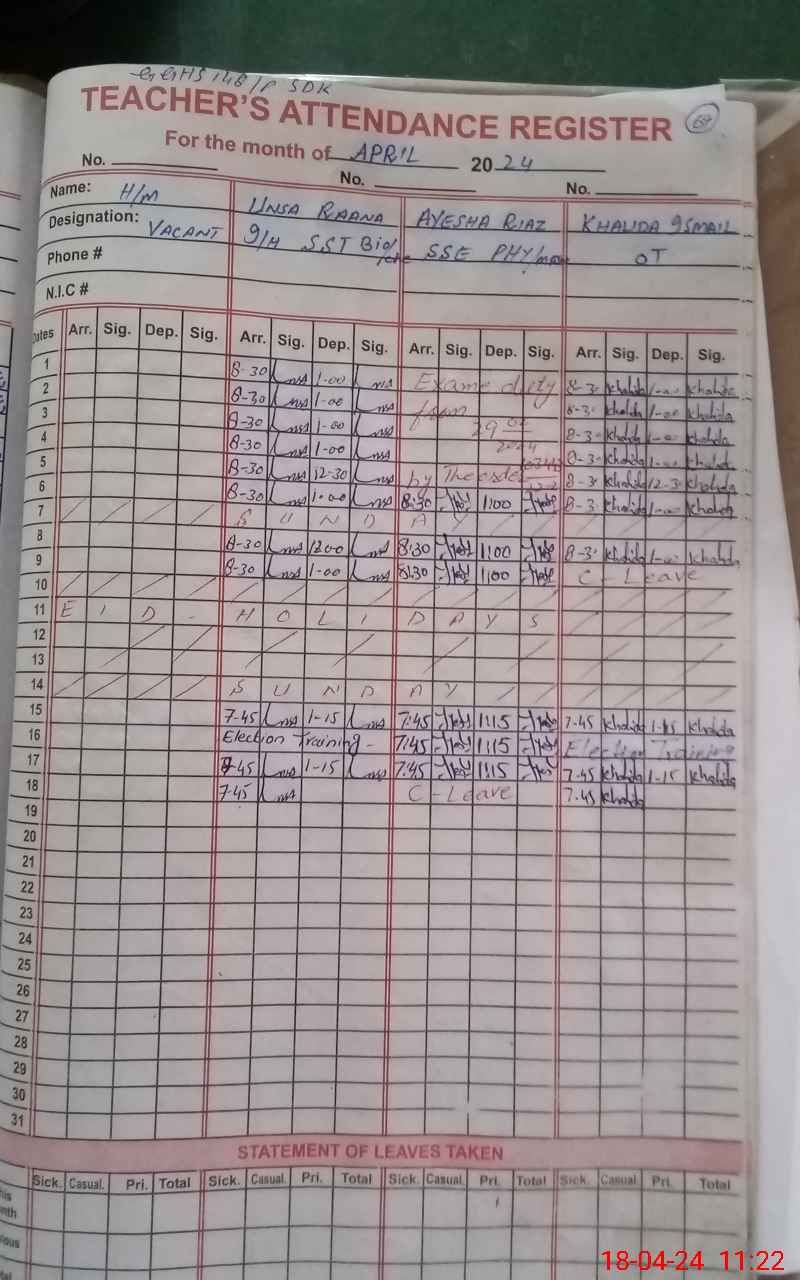 GGHS 148/P SDK
TEACHER'S ATTENDANCE REGISTER 69
For the month of APRIL 2024
No. No. No.
Name: H/M UNSA RAANA AYESHA RIAZ KHALIDA ISMAIL
Designation: VACANT I/H SST Bio/che SSE PHY/math OT
Phone #
N.I.C #
Dates Arr. Sig. Dep. Sig. Arr. Sig. Dep. Sig. Arr. Sig. Dep. Sig. Arr. Sig. Dep. Sig.
1 8-30 Unsa 1-00 Unsa Exame duty 8-3 Khalida 1-00 Khalida
2 8-30 Unsa 1-00 Unsa from 8-3 Khalida 1-00 Khalida
3 8-30 Unsa 1-00 Unsa 8-3 Khalida 1-00 Khalida
4 8-30 Unsa 1-00 Unsa 2024 8-3 Khalida 1-00 Khalida
5 8-30 Unsa 12-30 Unsa by The order 8-3 Khalida 12-3 Khalida
6 8-30 Unsa 1-00 Unsa 8:30 1:00 8-3 Khalida 1-00 Khalida
7 S U N D A Y
8 8-30 Unsa 1200 Unsa 8:30 1:00 8-3 Khalida 1-00 Khalida
9 8-30 Unsa 1-00 Unsa 8:30 1:00 C - Leave
10
11 E I D - H O L I D A Y S
12
13
14 S U N D A Y
15 7-45 Unsa 1-15 Unsa 7:45 1:15 7.45 Khalida 1-15 Khalida
16 Election Training - 7:45 1:15 Election Training
17 7-45 Unsa 1-15 Unsa 7:45 1:15 7.45 Khalida 1-15 Khalida
18 7-45 Unsa C - Leave 7.45 Khalida
19
20
21
22
23
24
25
26
27
28
29
30
31
STATEMENT OF LEAVES TAKEN
Sick. Casual. Pri. Total Sick. Casual. Pri. Total Sick. Casual. Pri. Total Sick. Casual. Pri. Total
18-04-24 11:22